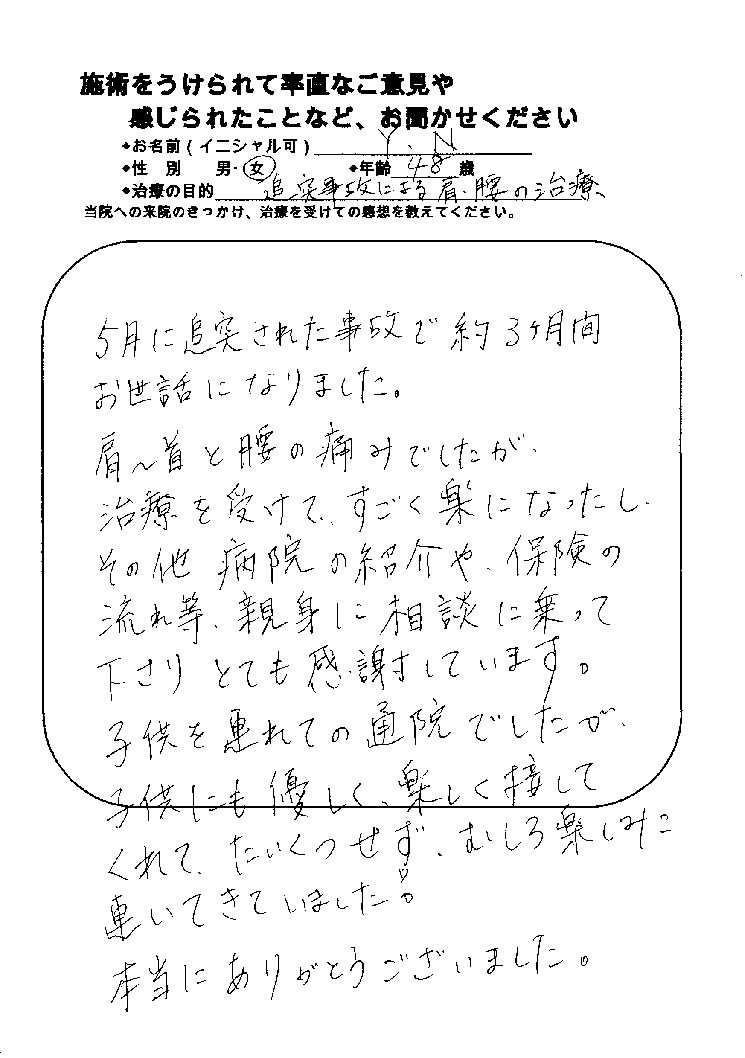 施術をうけられて率直なご意見や
感じられたことなど、お聞かせください
◆お名前(イニシャル可) Y.N
◆性 別 男・女 ◆年齢 48 歳
◆治療の目的 追突事故による肩、腰の治療、
当院への来院のきっかけ、治療を受けての感想を教えてください。
5月に追突された事故で約3ヶ月間
お世話になりました。
肩〜首と腰の痛みでしたが、
治療を受けて、すごく楽になったし、
その他 病院の紹介や、保険の
流れ等、親身に相談に乗って
下さり とても感謝しています。
子供を連れての通院でしたが、
子供にも優しく、楽しく接して
くれて、たいくつせず、むしろ楽しみに
連いてきていました。
本当にありがとうございました。